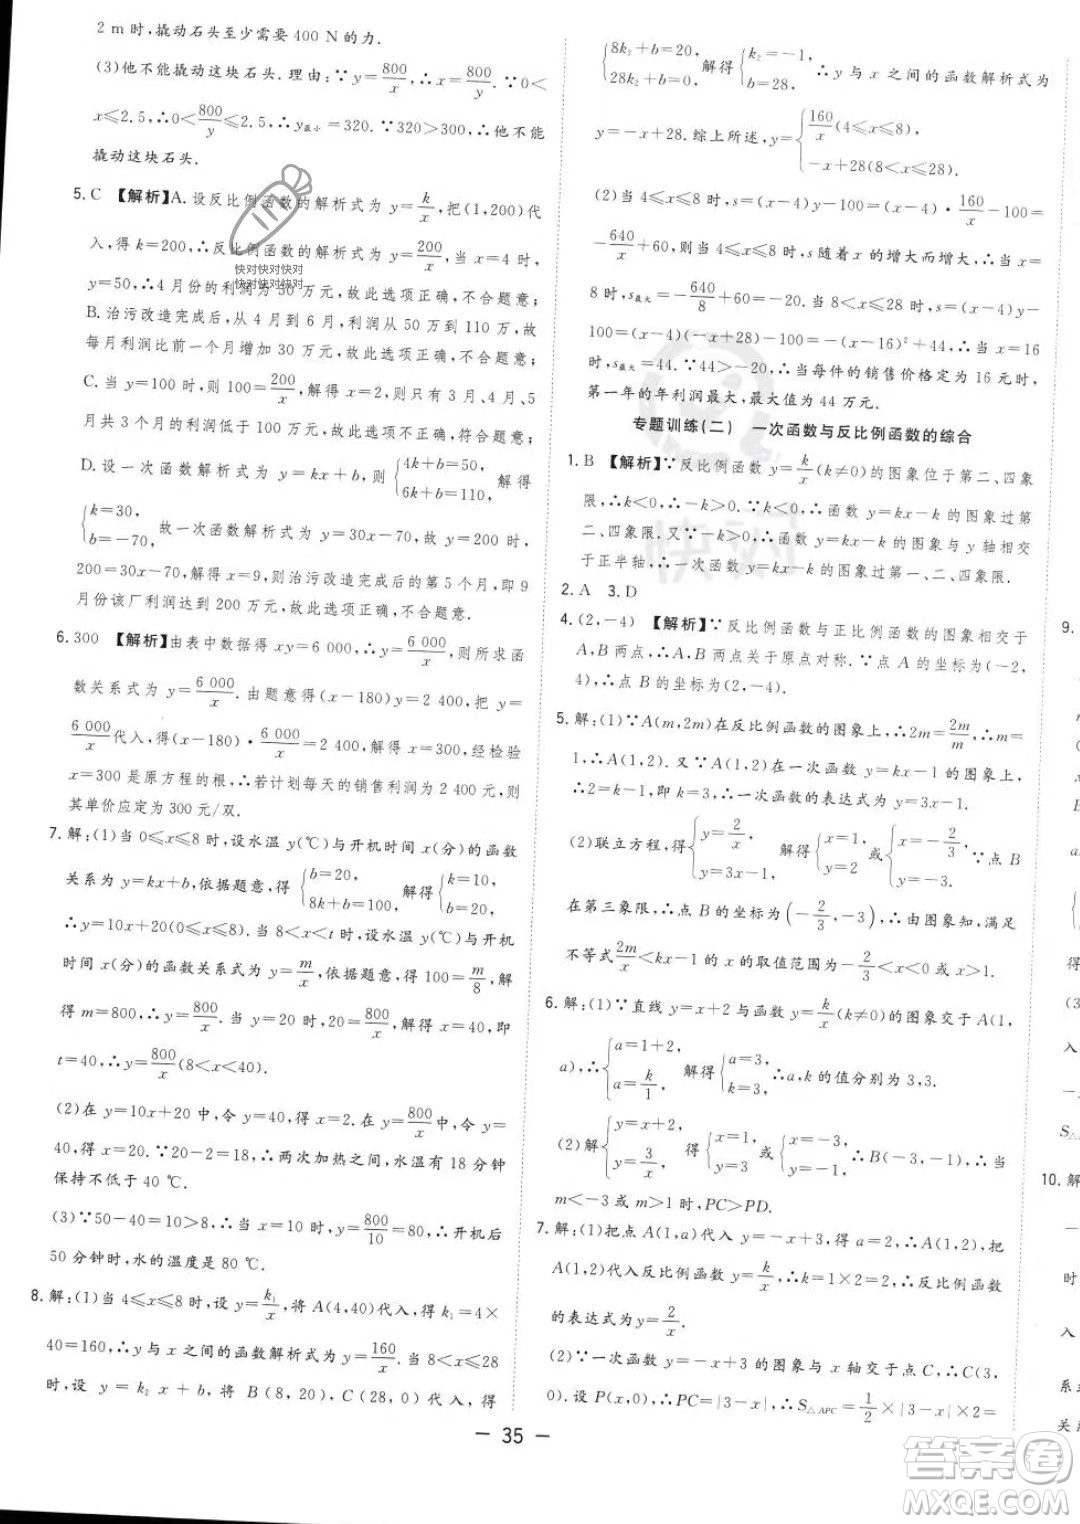 2 m时,撬动石头至少需要 400 N的力.
(3)他不能撬动这块石头.理由:∵y=800/x,∴x=800/y.∵0<
x≤2.5,∴0<800/y≤2.5,∴y最小=320.∵320>300,∴他不能
撬动这块石头.
5. C 【解析】A.设反比例函数的解析式为 y=k/x,把(1,200)代
入,得 k=200,∴反比例函数的解析式为 y=200/x.当 x=4时,
y=50,∴4月份的利润为 50万元,故此选项正确,不合题意;
B.治污改造完成后,从4月到6月,利润从50万到110万,故
每月利润比前一个月增加30万元,故此选项正确,不合题意;
C.当 y=100时,则100=200/x,解得 x=2,则只有3月、4月、5月
共3个月的利润低于100万元,故此选项不正确,符合题意;
D.设一次函数解析式为 y=kx+b,则{4k+b=50, 6k+b=110,解得
{k=30, b=-70,故一次函数解析式为 y=30x-70,故 y=200时,
200=30x-70,解得 x=9,则治污改造完成后的第5个月,即9
月份该厂利润达到200万元,故此选项正确,不合题意.
6. 300 【解析】由表中数据得 xy=6 000,∴y=6 000/x,则所求函
数关系式为 y=6 000/x.由题意得(x-180)y=2 400,把 y=
6 000/x代入,得(x-180)·6 000/x=2 400,解得 x=300,经检验
x=300是原方程的根,∴若计划每天的销售利润为2 400元,则
其单价应定为300元/双.
7. 解:(1)当0≤x≤8时,设水温 y(℃)与开机时间 x(分)的函数
关系为 y=kx+b,依据题意,得{b=20, 8k+b=100,解得{k=10, b=20,
∴y=10x+20(0≤x≤8).当8<x<t时,设水温 y(℃)与开机
时间 x(分)的函数关系式为 y=m/x,依据题意,得100=m/8,解
得 m=800,∴y=800/x.当 y=20时,20=800/x,解得 x=40,即
t=40,∴y=800/x(8<x<40).
(2)在 y=10x+20中,令 y=40,得 x=2.在 y=800/x中,令 y=
40,得 x=20.∵20-2=18,∴两次加热之间,水温有18分钟
保持不低于40 ℃.
(3)∵50-40=10>8,∴当 x=10时,y=800/10=80,∴开机后
50分钟时,水的温度是80 ℃.
8. 解:(1)当4≤x≤8时,设 y=k₁/x,将A(4,40)代入,得 k₁=4×
40=160,∴y与 x之间的函数解析式为 y=160/x.当8<x≤28
时,设 y=k₂x+b,将 B(8,20),C(28,0)代入,得
{8k₂+b=20, 28k₂+b=0,解得{k₂=-1, b=28,∴y与 x之间的函数解析式为
y=-x+28.综上所述,y={160/x(4≤x≤8), -x+28(8<x≤28).
(2)当4≤x≤8时,s=(x-4)y-100=(x-4)·160/x-100=
-640/x+60,∵当4≤x≤8时,s随着x的增大而增大,∴当 x=
8时,s最大=-640/8+60=-20.当8<x≤28时,s=(x-4)y-
100=(x-4)(-x+28)-100=-(x-16)²+44,∴当 x=16
时,s最大=44.∵44>-20,∴当每件的销售价格定为16元时,
第一年的年利润最大,最大值为44万元.
专题训练(二) 一次函数与反比例函数的综合
1. B 【解析】∵反比例函数 y=k/x(k≠0)的图象位于第二、四象
限,∴k<0,∴-k>0.∵k<0,∴函数 y=kx-k的图象过第
二、四象限.∵-k>0,∴函数 y=kx-k的图象与 y轴相交
于正半轴,∴一次函数 y=kx-k的图象过第一、二、四象限.
2. A 3. D
4. (2,-4) 【解析】∵反比例函数与正比例函数的图象相交于
A,B两点,∴A,B两点关于原点对称.∵点A的坐标为(-2,
4),∴点B的坐标为(2,-4).
5. 解:(1)∵A(m,2m)在反比例函数的图象上,∴2m=2m/m,∴m=
1,∴A(1,2).又∵A(1,2)在一次函数 y=kx-1的图象上,
∴2=k-1,即k=3,∴一次函数的表达式为 y=3x-1.
(2)联立方程,得{y=2/x, y=3x-1,解得{x=1, y=2或{x=-2/3, y=-3.∵点B
在第三象限,∴点B的坐标为(-2/3,-3),∴由图象知,满足
不等式2m/x<kx-1的x的取值范围为-2/3<x<0或x>1.
6. 解:(1)∵直线 y=x+2与函数 y=k/x(k≠0)的图象交于A(1,
a),∴{a=1+2, a=k/1,解得{a=3, k=3.∴a,k的值分别为3,3.
(2)解{y=x+2, y=3/x得{x=1, y=3或{x=-3, y=-1.∴B(-3,-1),∴当
m<-3或m>1时,PC>PD.
7. 解:(1)把点A(1,a)代入 y=-x+3,得a=2,∴A(1,2),把
A(1,2)代入反比例函数 y=k/x,∴k=1×2=2,∴反比例函数
的表达式为 y=2/x.
(2)∵一次函数 y=-x+3的图象与 x轴交于点C,∴C(3,
0).设P(x,0),∴PC=|3-x|,∴S△APC=1/2×|3-x|×2=
— 35 —
9.
10. 解
快对快对快对
快对快对快对
快对
答案卷
MXQE.COM